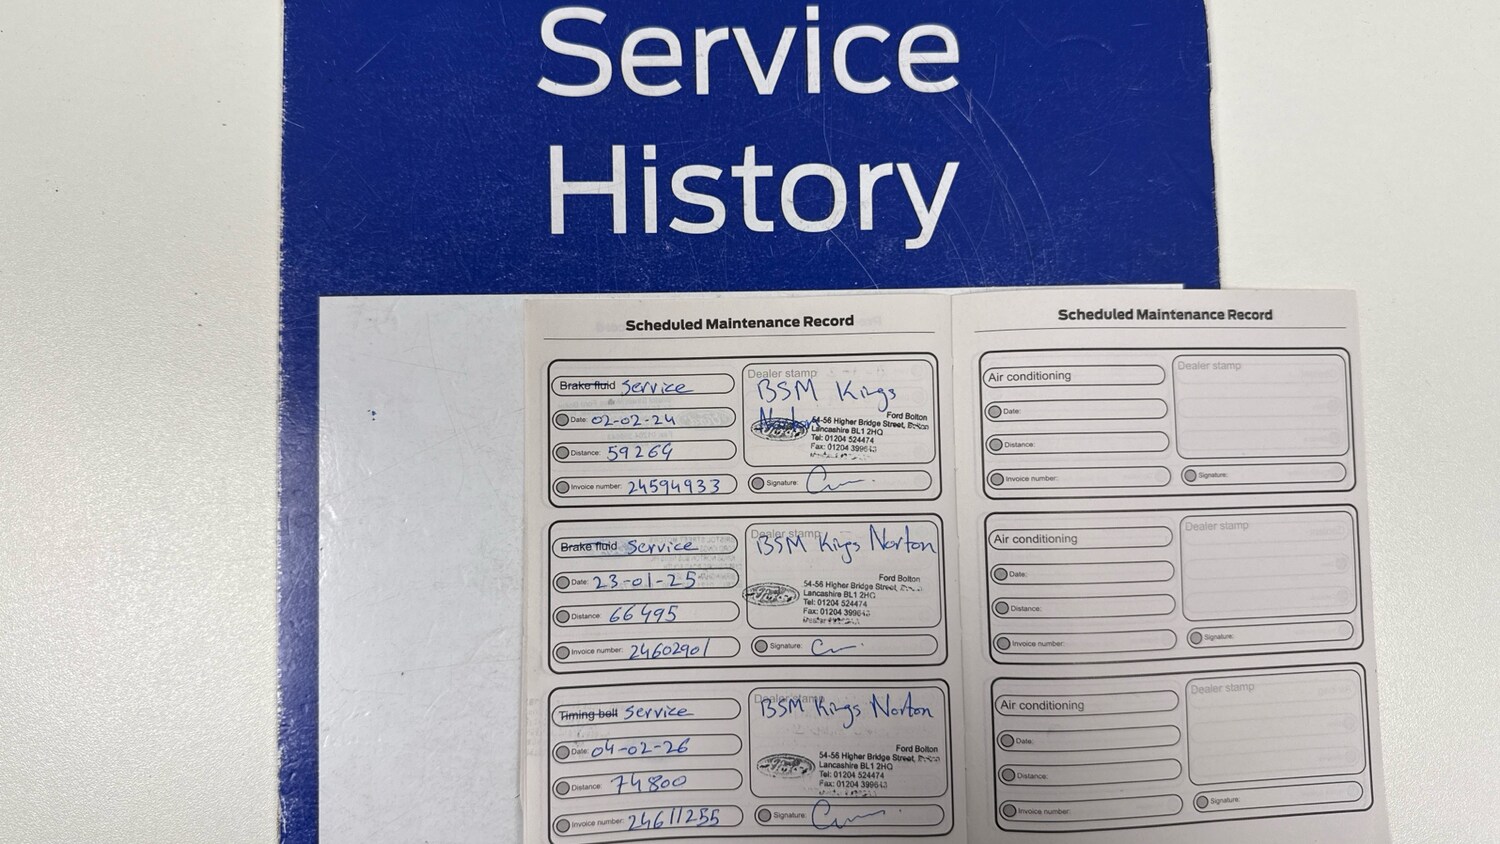 Service
History
Scheduled Maintenance Record
Brake fluid Service
Date: 02-02-24
Distance: 59269
Invoice number: 24594933
Dealer stamp
BSM Kings
Norton
Ford Bolton
54-56 Higher Bridge Street, Bolton
Lancashire BL1 2HQ
Tel: 01204 524474
Fax: 01204
Signature:
Brake fluid Service
Date: 23-01-25
Distance: 66495
Invoice number: 24602901
Dealer stamp
BSM Kings Norton
Ford Bolton
54-56 Higher Bridge Street,
Lancashire BL1 2HQ
Tel: 01204 524474
Fax: 01204
Signature:
Timing belt Service
Date: 04-02-26
Distance: 74800
Invoice number: 24611255
Dealer stamp
BSM Kings Norton
Ford Bolton
54-56 Higher Bridge Street,
Lancashire BL1 2HQ
Tel: 01204 524474
Fax: 01204
Signature:
Scheduled Maintenance Record
Air conditioning
Date:
Distance:
Invoice number:
Dealer stamp
Signature:
Air conditioning
Date:
Distance:
Invoice number:
Dealer stamp
Signature:
Air conditioning
Date:
Distance:
Invoice number:
Dealer stamp
Signature: